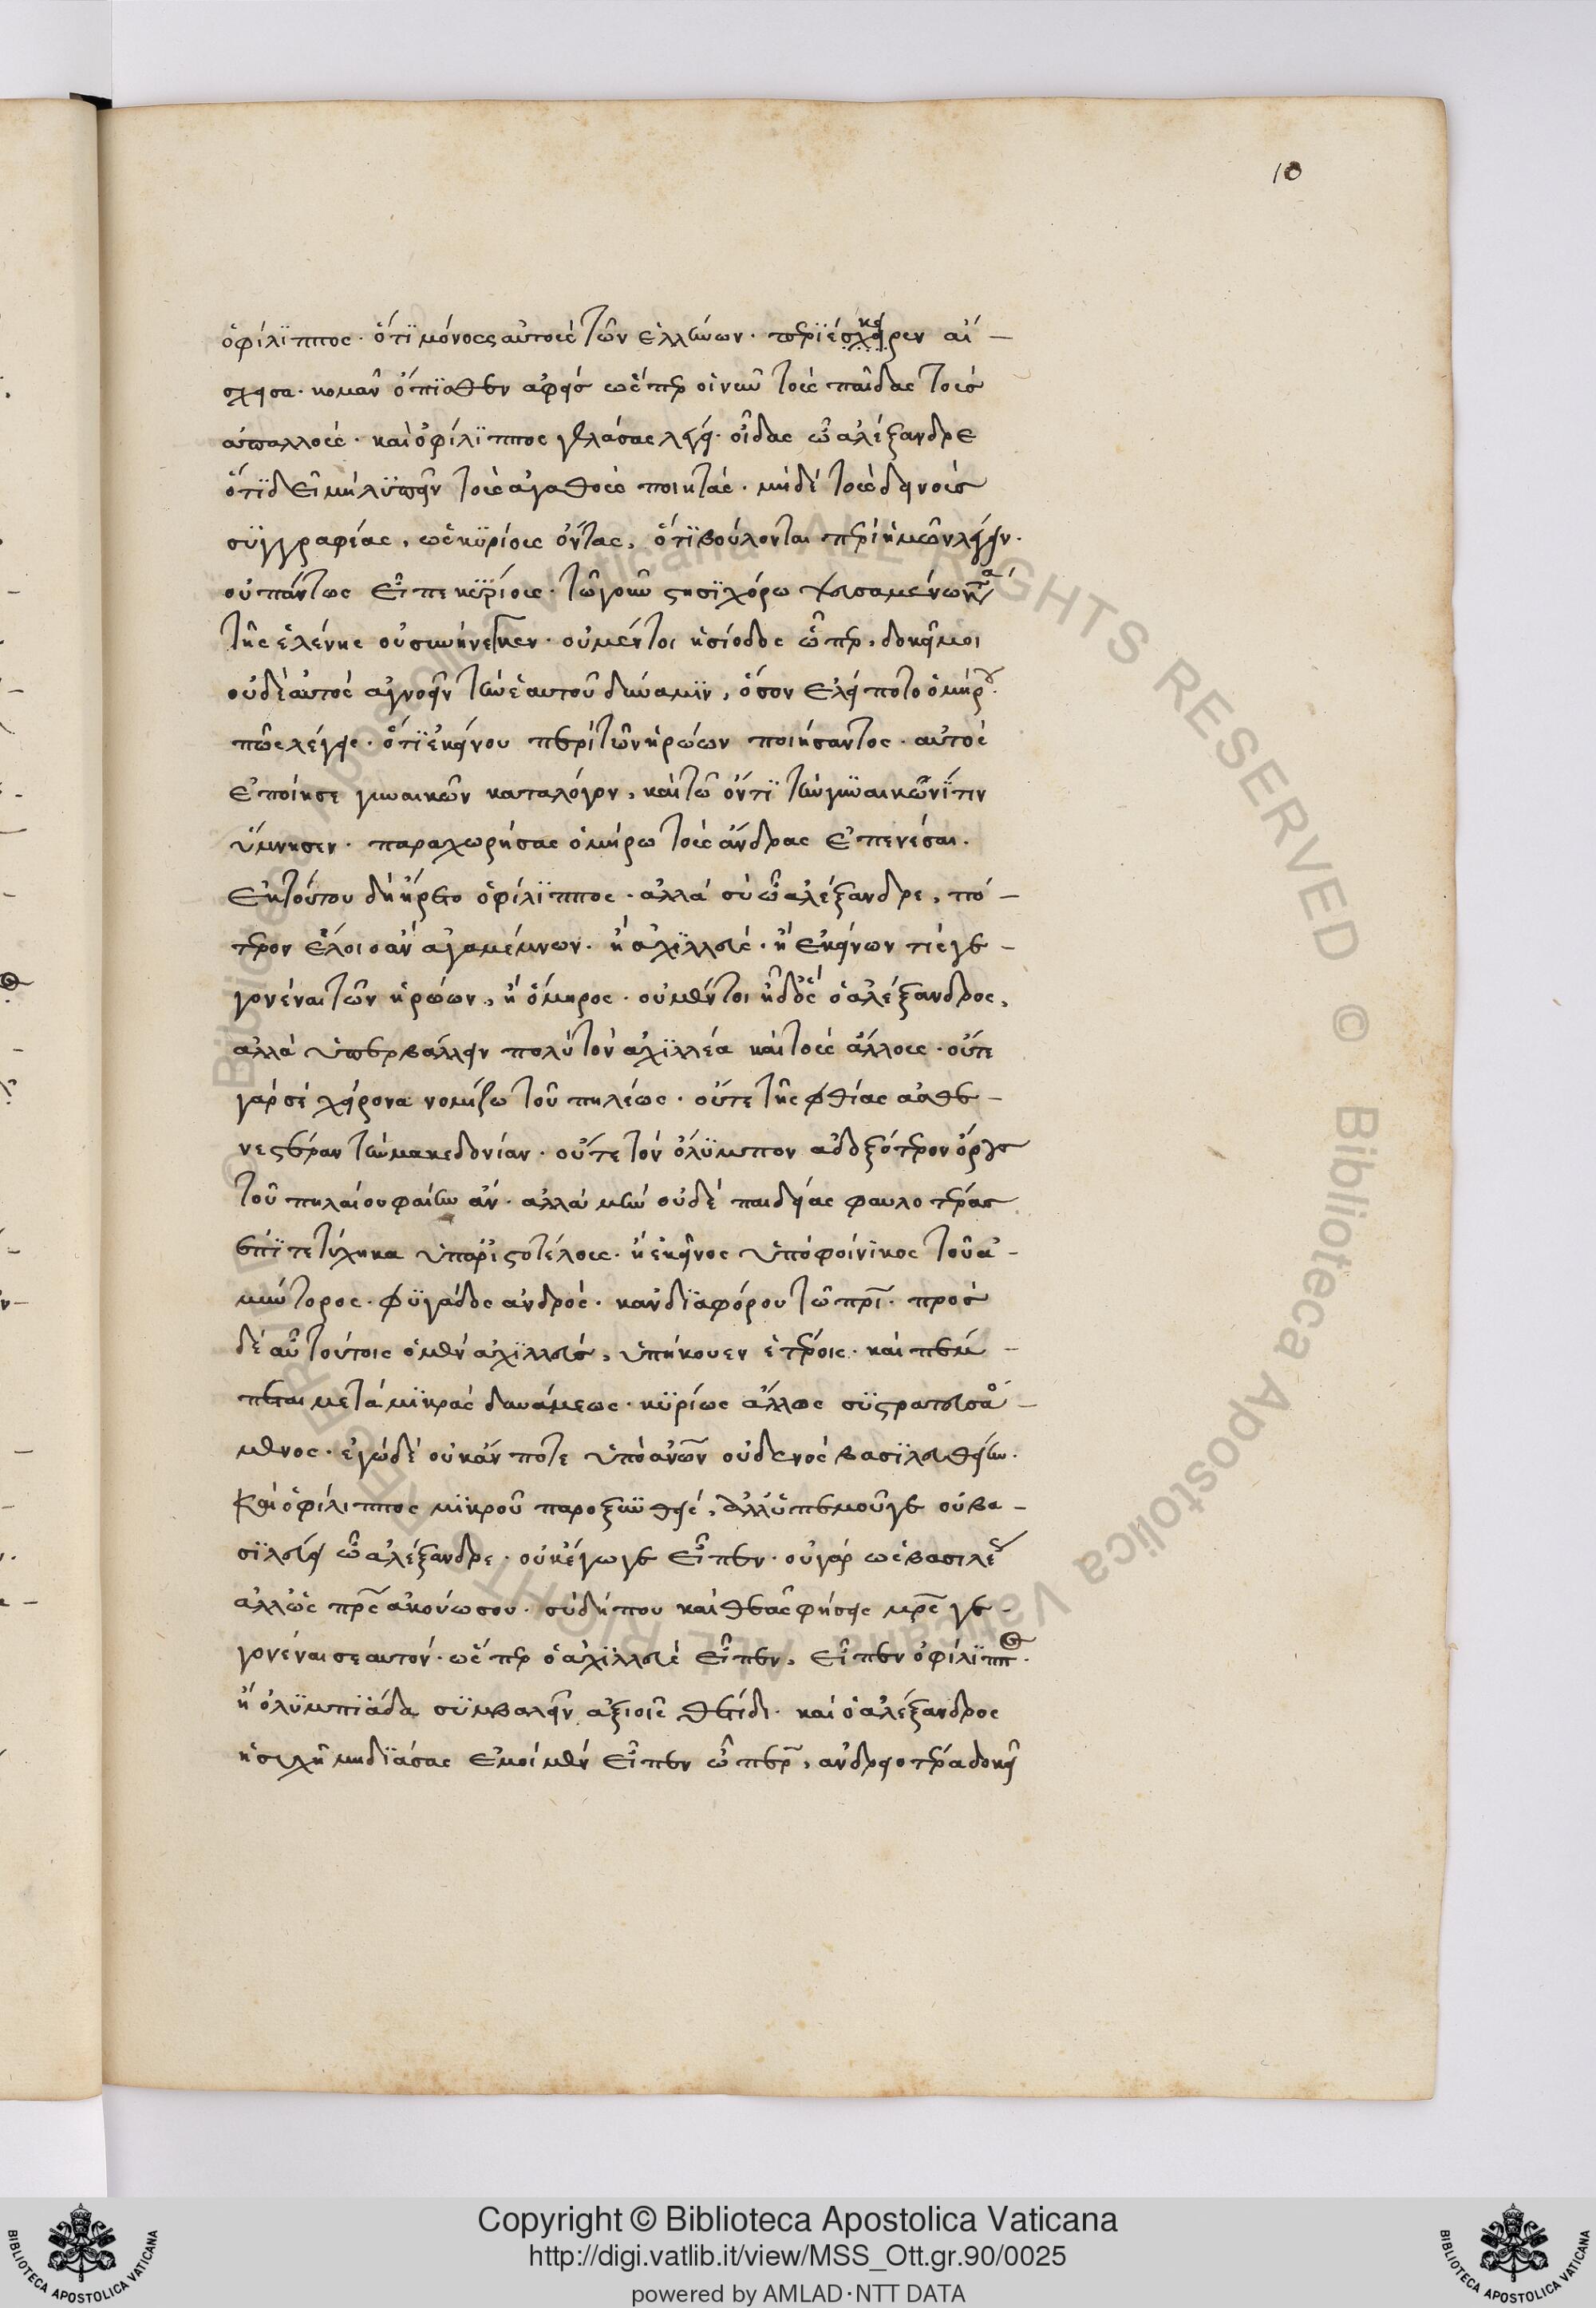 10
ὁ φίλϊππος· ὅτϊ μόνους αὐτοὺς τῶν ἑλλήνων· περϊέσχειρεν αἰ-
σχῆσα· κομᾶν ὄπϊσθεν ἀφεὶς ὡσπερ οἱ νῦν τοὺς παῖδας τοὺς
ἁπαλλοὺς· καὶ ὁ φίλϊππος γελάσας λέγει· οἶδας ὦ ἀλέξανδρε
ὅτϊ δεῖ μὴ λϋπεῖν τοὺς ἀγαθοὺς ποιητὰς· μὴδὲ τοὺς δεινοὺς
σϋγγραφέας, ὡς κϋρίους ὄντας, ὅτϊ βούλονται περὶ ἡμῶν λέγειν·
οὐ πάντως εἶπε κϋρίους· τῷ γοῦν στησϊχόρω ψευσαμένω κατὰ
τῆς ἑλένης οὐ συνήνεγκεν· οὐ μέντοι ἡσίοδος ὦ περ, δοκεῖ μοι
οὐδὲ αὐτὸς ἀγνοεῖν τὴν ἑαυτοῦ δύναμϊν, ὅσον ἐλείπετο ὁμήρου·
πῶς λέγεις· ὅτϊ ἐκείνου περὶ τῶν ἡρώων ποιήσαντος· αὐτὸς
ἐποίησε γυναικῶν κατάλογον, καὶ τῷ ὄντϊ τὴν γϋναικωνῖτιν
ὕμνησεν· παραχωρήσας ὁμήρω τοὺς ἄνδρας ἐπενέσαι.
Ἐκ τούτου δὴ ἤρετο ὁ φίλϊππος· ἀλλὰ σὺ ὦ ἀλέξανδρε, πό-
τερον ἕλοιο ἂν ἀγαμέμνων· ἢ ἀχϊλλεὺς· ἢ ἐκείνων τις γε-
γονέναι τῶν ἡρώων, ἢ ὅμηρος· οὐ μέντοι ἦ δὸς ὁ ἀλέξανδρος,
ἀλλὰ ὑπερβάλλειν πολὺ τὸν ἀχϊλλέα καὶ τοὺς ἄλλους· οὔτε
γὰρ σὲ χείρονα νομίζω τοῦ πηλέως· οὔτε τῆς φθίας ἀσθε-
νεστέραν τὴν μακεδονίαν· οὔτε τὸν ὄλϋμπον ἀδοξότερον ὄρος
τοῦ πηλαίου φαίην ἂν· ἀλλὰ μὴν οὐδὲ παιδείας φαυλοτέρας
ἐπϊτετύχηκα ὑπ' ἀρϊστοτέλους· ἢ ἐκεῖνος ὑπὸ φοίνϊκος τοῦ ἀ-
μύντορος· φϋγάδος ἀνδρὸς· κανδϊαφόρου τῷ πρϊ· πρὸς
δὲ αὖ τούτοις ὁ μὲν ἀχϊλλεὺς, ὑπήκουεν ἑτέροις· καὶ πέμ-
πεται μετὰ μϊκρᾶς δυνάμεως· κϋρίως ἄλλος σϋστρατευσό-
μενος· ἐγὼ δὲ οὐκ ἄν ποτε ὑπὸ ἀνῶν οὐδενὸς βασϊλευθείην.
Καὶ ὁ φίλιππος μϊκροῦ παροξυνθεὶς, ἀλλ' ὑπ' ἐμοῦ γε οὐ βα-
σϊλεύει ὦ ἀλέξανδρε· οὐκ ἔγωγε εἶπεν· οὐ γὰρ ὡς βασιλέως
ἀλλ' ὡς πρς ἀκούω σου· σὺ δήπου καὶ θεᾶς φήσεις μρς γε-
γονέναι σεαυτὸν· ὥσπερ ὁ ἀχϊλλεὺς εἶπεν, εἶπεν ὁ φίλϊππος·
ἢ ὀλϋμπϊάδα σϋμβαλεῖν ἀξιοῖς θέτιδι· καὶ ὁ ἀλέξανδρος
ἡσυχῇ μηδϊάσας ἐμοὶ μὲν εἶπεν ὦ περ, ἀνδρειοτέρα δοκεῖ
Copyright © Biblioteca Apostolica Vaticana
http://digi.vatlib.it/view/MSS_Ott.gr.90/0025
powered by AMLAD·NTT DATA